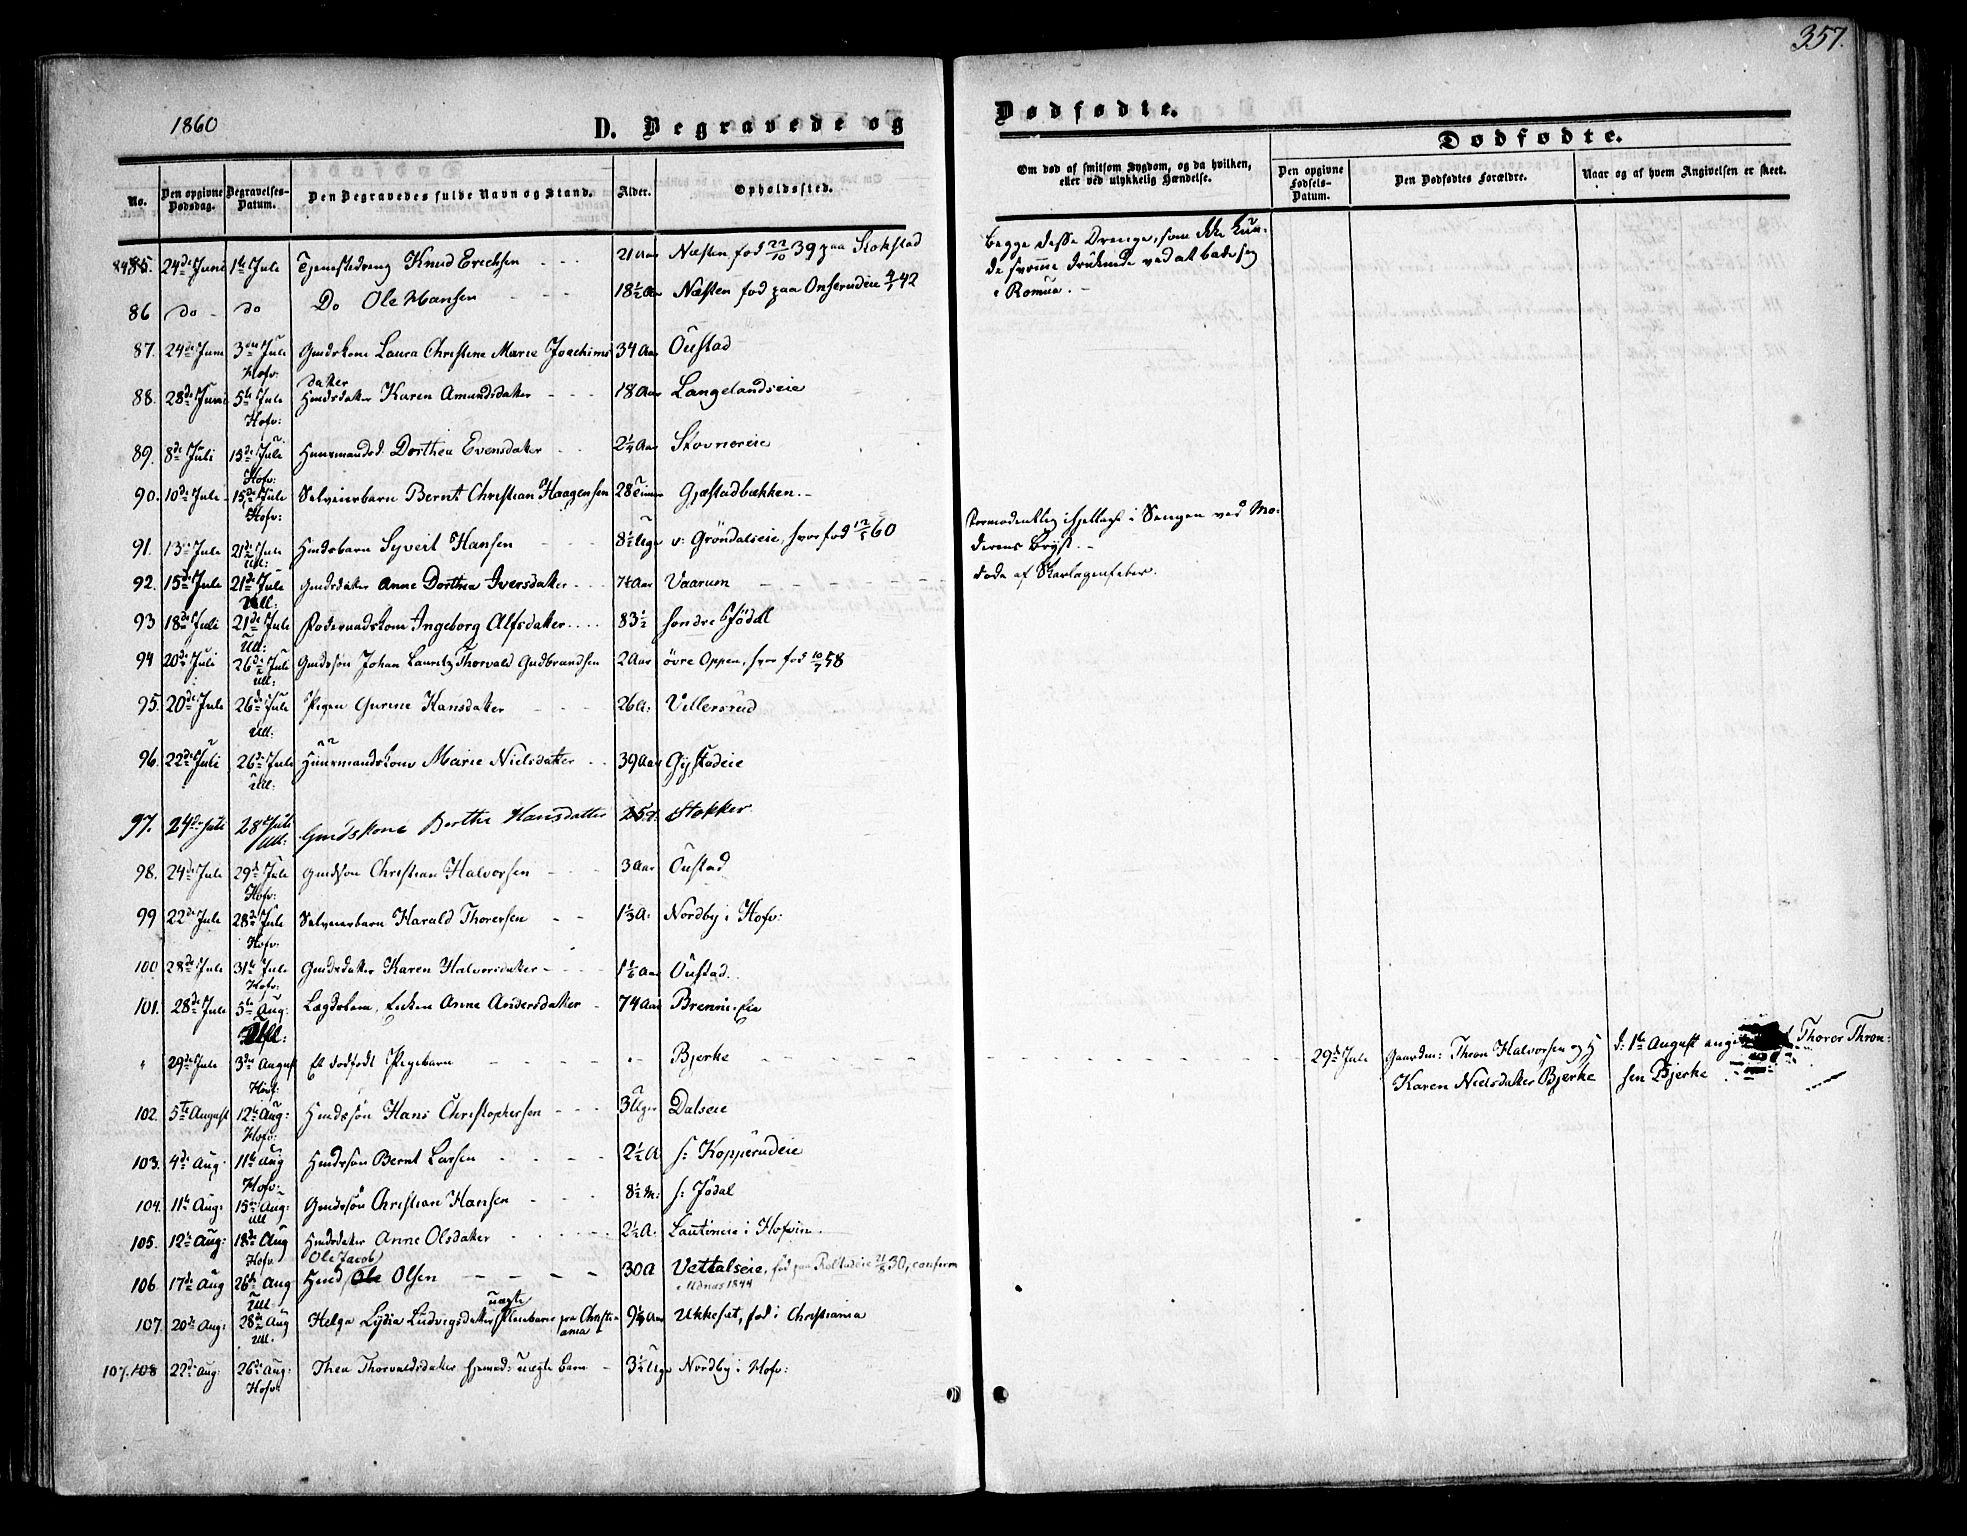 357.
1860
D. Begravede og
Dødfødte.
No.
Den opgivne Dødsdag.
Begravelses-Datum.
Den Begravedes fulde Navn og Stand.
Alder.
Opholdssted.
Om død af smitsom Sygdom, og da hvilken, eller ved ulykkelig Hændelse.
Dødfødte.
Den opgivne Fødsels-Datum.
Den Dødfødtes Forældre.
Naar og af hvem Angivelsen er skeet.
85. 24de Juni 1te Jule Tjenestedreng Knud Erichsen 21 Aar Næsten fød 22/10 39 paa Stokstad
Begge disse Drenge, som ikke kun-
de svømme druknede ved at bade sig
i Romua.
86 do do Do Ole Hansen 18 1/2 Aar Næsten fød paa Onserudeie 42
87. 24de Juni 3die Jule Hofv: Gmdskone Laura Christine Marie Joachims datter 34 Aar Oustad
88. 28de Juni 5te Jule Hofv: Hmdsdatter Karen Amundsdatter 18 Aar Langelandseie
89. 8de Juli 15de Jule Hofv: Huusmandsd. Dorthea Evensdatter 2 1/4 Aar Stovnereie
90. 10de Jule 15de Jule Hofv: Selveierbarn Bernt Christian Haagensen 28 Timer Gjæstadbækken.
91. 13de Jule 21de Jule Ull: Hmdsbarn Syvert Hansen 8 1/2 Uge v: Gröndalseie, hvor fød 12/5 60
Formodentlig ihjellagt i Sengen ved Mo-
derens Bryst.
92. 15de Jule 21de Jule Ull: Gmdsdatter Anne Dorthea Iversdatter 7 1/2 Aar Vaarum
Døde af Skarlagensfeber.
93 18de Juli 21de Jule Ull: Føderaadskone Ingeborg Alfsdatter 83 1/2 søndre Jödal
94 20de Juli 26de Juli Ull: Gmdssön Johan Lauritz Thorvald Gudbrandsen 2 Aar övre Oppen, hvor fød 10/7 58
95. 20de Jule 26de Jule Ull: Pigen Gurine Hansdatter 26 A: Villersrud
96. 22de Juli 26de Jule Ull: Huusmandskone Marie Nielsdatter 39 Aar Gystadeie
97. 24de Juli 28de Juli Ull: Gmdskone Berthe Hansdatter Stokker
98. 24de Jule 29de Jule Hofv: Gmdsøn Christian Halvorsen 3 Aar Oustad
99 22de Jule 28de Jule Hofv: Selveierbarn Harald Thoresen 1 1/3 A: Nordby i Hofv:
100 28de Jule 31te Jule Hofv: Gmdsdatter Karen Halvorsdatter 1 1/6 Aar Oustad.
101. 28de Jule 5te Aug: Ull: Lægdslem, Enken Anne Andersdatter 74 Aar Brennie-Eie
" 29de Jule 3die August Hofv: Et dødfødt Pigebarn Bjerke
29de Jule Gaardm: Thron Halvorsen og
Karen Nielsdatter Bjerke
d: 1te August Thoror Thron-
sen Bjerke
102. 5te August 12te Aug: Hofv: Hmdssön Hans Christophersen 3 Uger Dalseie
103. 4de Aug 11te Aug Hofv: Hmdssön Bernt Larsen 2 1/2 A s: Kopperudeie
104. 11te Aug: 15de Aug: Ull Gmdssön Christian Hansen 8 1/2 M: s: Jödal
105. 12te Aug: 18de Aug Hofv Hmdsdatter Anne Olsdatter 2 1/2 A. Lautineie i Hofvin
Ole Jacob
106. 17de Aug 26de Aug Ull Hmd Ole Olsen 30 A Vettalseie, fød paa 30, conferm
i Udnæs 1844
107. 20de Aug: 28de Aug Ull. Helga Lydia Ludvigsdatter uægte Pleiebarn fra Christi-
ania 9 1/4 Aar Ukkeset, fød i Christiania
107.108 22de Aug: 26de Aug: Hofv: Thea Thorvaldsdatter uægte Barn 3 1/2 Uge Nordby i Hofv: